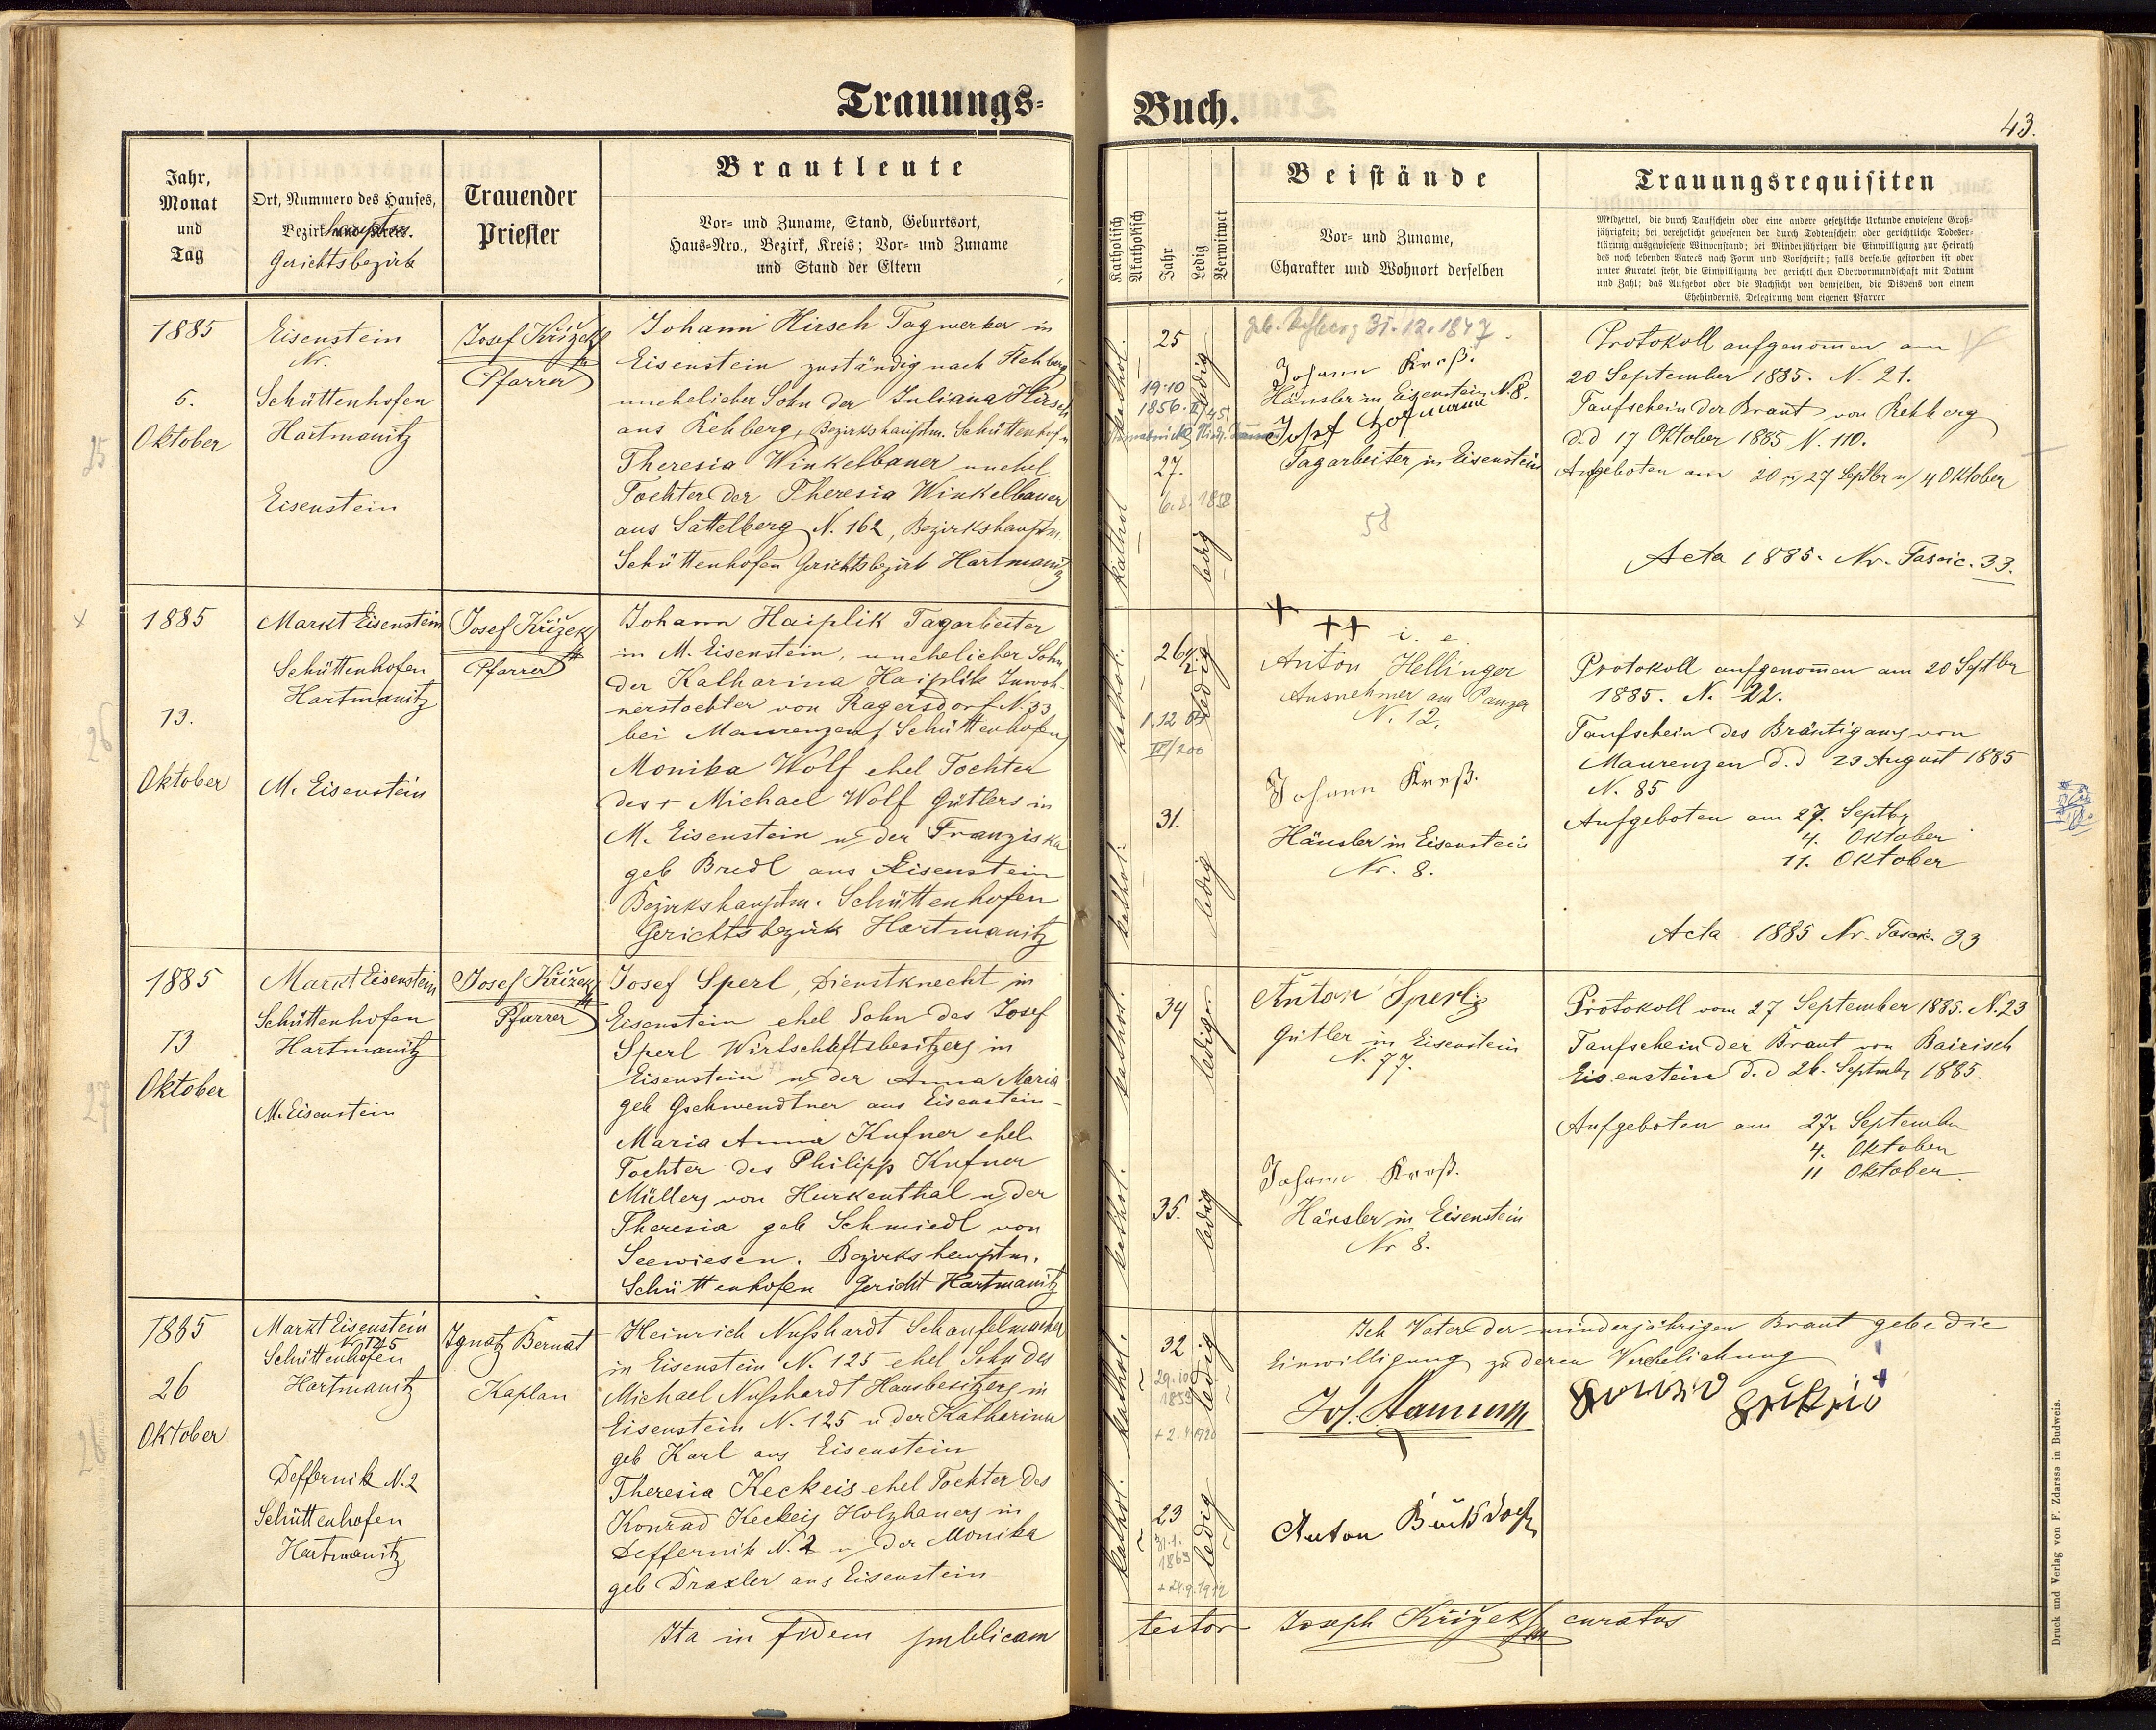 Trauungs-
Jahr,
Monat
und
Tag
Ort, Nummero des Hauses,
Bezirk und Kreis.
Hauptm.
Gerichtsbezirk
Trauender
Priester
Brautleute
Vor- und Zuname, Stand, Geburtsort,
Haus-Nro., Bezirk, Kreis; Vor- und Zuname
und Stand der Eltern
1885
5.
Oktober
25
Eisenstein
Nr.
Schüttenhofen
Hartmanitz
Eisenstein
Josef Křižek
Pfarrer
Johann Hirsch Tagwerker in
Eisenstein zuständig nach Rehberg
unehelicher Sohn der Juliana Hirsch
aus Rehberg, Bezirkshauptm. Schüttenhofen
Theresia Winkelbauer unehel
Tochter der Theresia Winkelbauer
aus Sattelberg N. 162, Bezirkshauptm.
Schüttenhofen Gerichtsbezirk Hartmanitz
x
1885
13.
Oktober
26
Markt Eisenstein
Schüttenhofen
Hartmanitz
M. Eisenstein
Josef Křižek
Pfarrer
Johann Haiplik Tagarbeiter
in M. Eisenstein, unehelicher Sohn
der Katharina Haiplik Inwoh-
nerstochter von Ragersdorf N. 33
bei Maurenzen, Schüttenhofen
Monika Wolf ehel Tochter
des + Michael Wolf Gütlers in
M. Eisenstein u der Franziska
geb Bredl aus Eisenstein
Bezirkshauptm. Schüttenhofen
Gerichtsbezirk Hartmanitz
1885
13
Oktober
27
Markt Eisenstein
Schüttenhofen
Hartmanitz
M. Eisenstein
Josef Křižek
Pfarrer
Josef Sperl, Dienstknecht in
Eisenstein ehel Sohn des Josef
Sperl Wirtschaftsbesitzers in
Eisenstein u der Anna Maria
geb Gschwendtner aus Eisenstein-
Maria Anna Kufner ehel
Tochter des Philipp Kufner
Müllers von Hurkenthal u der
Theresia geb Schmiedl von
Seewiesen. Bezirkshauptm.
Schüttenhofen Gericht Hartmanitz
1885
26
Oktober
Markt Eisenstein
N. 125
Schüttenhofen
Hartmanitz
Deffernik N. 2
Schüttenhofen
Hartmanitz
Ignatz Bernat
Kaplan
Heinrich Nußhardt Schaufelmacher
in Eisenstein N. 125 ehel Sohn des
Michael Nußhardt Hausbesitzers in
Eisenstein N. 125 u der Katharina
geb Karl aus Eisenstein
Theresia Keckeis ehel Tochter des
Konrad Keckeis Holzhauers in
Deffernik N. 2 u der Monika
geb Draxler aus Eisenstein
Ita in fidem publicam
Buch.
43.
Katholisch
Akatholisch
Jahr
Ledig
Verwitwet
Beistände
Vor- und Zuname,
Charakter und Wohnort derselben
Trauungsrequisiten
Meldzettel, die durch Taufschein oder eine andere gesetzliche Urkunde erwiesene Groß-
jährigkeit; bei verehelicht gewesenen der durch Todtenschein oder gerichtliche Todeser-
klärung ausgewiesene Witwenstand; bei Minderjährigen die Einwilligung zur Heirath
des noch lebenden Vaters nach Form und Vorschrift; falls derselbe gestorben ist oder
unter Kuratel steht, die Einwilligung der gerichtlichen Obervormundschaft mit Datum
und Zahl; das Aufgebot oder die Nachsicht von demselben, die Dispens von einem
Ehehindernis, Delegirung vom eigenen Pfarrer
kathol.
25
ledig
19.10
1856.
kathol
27.
6.2.1858
ledig
31.12.1847
Johann Kreß.
Häusler in Eisenstein N. 8.
Josef Hofmann
Tagarbeiter in Eisenstein
58
Protokoll aufgenommen am
20 September 1885. N. 21.
Taufschein der Braut von Rehberg
d.d 17 Oktober 1885 N. 110.
Aufgeboten am 20 u 27 Septbr u 4 Oktober
Acta 1885. Nr. Fascic. 33.
kathol.
26 1/2
ledig
kathol.
31.
ledig
+
++ i. e.
Anton Hellinger
Ausnehmer am Panzer
N. 12.
Johann Kreß.
Häusler in Eisenstein
Nr. 8.
Protokoll aufgenommen am 20 Septbr
1885. N. 22.
Taufschein des Bräutigams von
Maurenzen d.d 23 August 1885
N. 85
Aufgeboten am 27. Septbr
4. Oktober
11. Oktober
Acta 1885 Nr. Fascic. 33
kathol.
34
ledig
kathol.
35.
ledig
Anton Sperl
Gütler in Eisenstein
N. 77.
Johann Kreß.
Häusler in Eisenstein
Nr 8.
Protokoll vom 27 September 1885. N. 23
Taufschein der Braut von Bairisch
Eisenstein d.d 26. Septembr 1885.
Aufgeboten am 27. September
4. Oktober
11 Oktober
kathol.
32
29.10
1853
ledig
kathol.
23
31.1.
1863
ledig
Ich Vater der minderjährigen Braut gebe die
Einwilligung zu deren Verehelichung
Anton
testor Joseph Křižek curatus
Druck und Verlag von F. Zdarssa in Budweis.